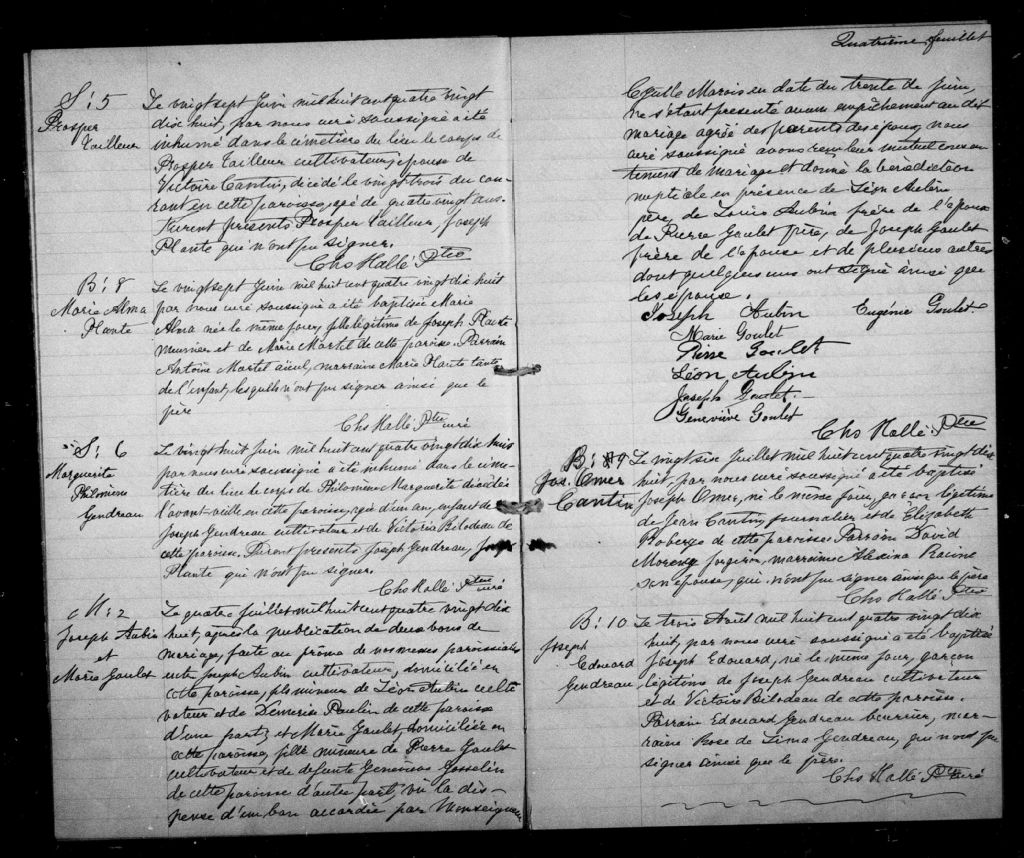 S: 5
Prosper
Tailleur
Le vingt sept Juin mil huit cent quatre vingt
dix huit, par nous curé soussigné a été
inhumé dans le cimetière du lieu le corps de
Prosper Tailleur cultivateur, époux de
Victoire Cantin, décédé le vingt trois du cou-
rant en cette paroisse, agé de quatre vingt ans.
Furent présents Prosper Tailleur, Joseph
Plante qui n'ont pu signer.
Chs Hallé Ptre
B: 8
Marie Alma
Plante
Le vingt sept Juin mil huit cent quatre vingt dix huit
par nous curé soussigné a été baptisée Marie
Alma née le même jour, fille légitime de Joseph Plante
meunier et de Marie Martel de cette paroisse. Parrain
Antoine Martel aieul, marraine Marie Plante tante
de l'enfant, lesquels n'ont pu signer ainsi que le
père
Chs Hallé Ptre curé
S: 6
Marguerite
Philomène
Gendreau
Le vingt huit Juin mil huit cent quatre vingt dix huit
par nous curé soussigné a été inhumé dans le cime-
tière du lieu le corps de Philomène Marguerite décédée
l'avant-veille en cette paroisse, agée d'un an, enfant de
Joseph Gendreau cultivateur et de Victoria Bilodeau de
cette paroisse. Furent présents Joseph Gendreau, Joseph
Plante qui n'ont pu signer.
Chs Hallé Ptre curé
M: 2
Joseph Aubin
et
Marie Goulet
Le quatre juillet mil huit cent quatre vingt dix
huit, après la publication de deux bans de
mariage, faite au prône de nos messes paroissiales
entre Joseph Aubin cultivateur, domicilié en
cette paroisse, fils mineur de Léon Aubin culti-
vateur et de Demerise Paulin de cette paroisse
d'une part; et Marie Goulet domiciliée en
cette paroisse, fille mineure de Pierre Goulet
cultivateur et de defunte Geneviève Gosselin
de cette paroisse d'autre part; vu la dis-
pense d'un ban accordée par Monseigneur
Quatrième feuillet
Marois en date du trente de juin,
ne s'étant présenté aucun empêchement au dit
mariage agréé des parents des époux, nous
curé soussigné avons reçu leur mutuel consen-
tement de mariage et donné la bénédiction
nuptiale en présence de Léon Aubin
père, de Louis Aubin frère de l'époux
de Pierre Goulet père, de Joseph Goulet
frère de l'épouse et de plusieurs autres
dont quelques uns ont signé ainsi que
les épouse.
Joseph Aubin Eugénie Goulet.
Marie Goulet
Pierre Goulet
Léon Aubin
Joseph Goulet
Geneviève Goulet
Chs Hallé Ptre
B: 9
Jos. Omer
Cantin
Le vingt six Juillet mil huit cent quatre vingt dix
huit, par nous curé soussigné a été baptisé
Joseph Omer, né le même jour, garçon légitime
de Jean Cantin, journalier et de Elizabeth
Roberge de cette paroisse. Parrain David
forgeron, marraine Alexina Racine
son épouse, qui n'ont pu signer ainsi que le père
Chs Hallé Ptre
B: 10
Joseph
Edouard
Gendreau
Le trois Août mil huit cent quatre vingt dix
huit, par nous curé soussigné a été baptisé
Joseph Edouard, né le même jour, garçon
légitime de Joseph Gendreau cultivateur
et de Victoire Bilodeau de cette paroisse.
Parrain Edouard Gendreau beurrier, mar-
raine Rose de Lima Gendreau, qui n'ont pu
signer ainsi que le père.
Chs Hallé Ptre curé